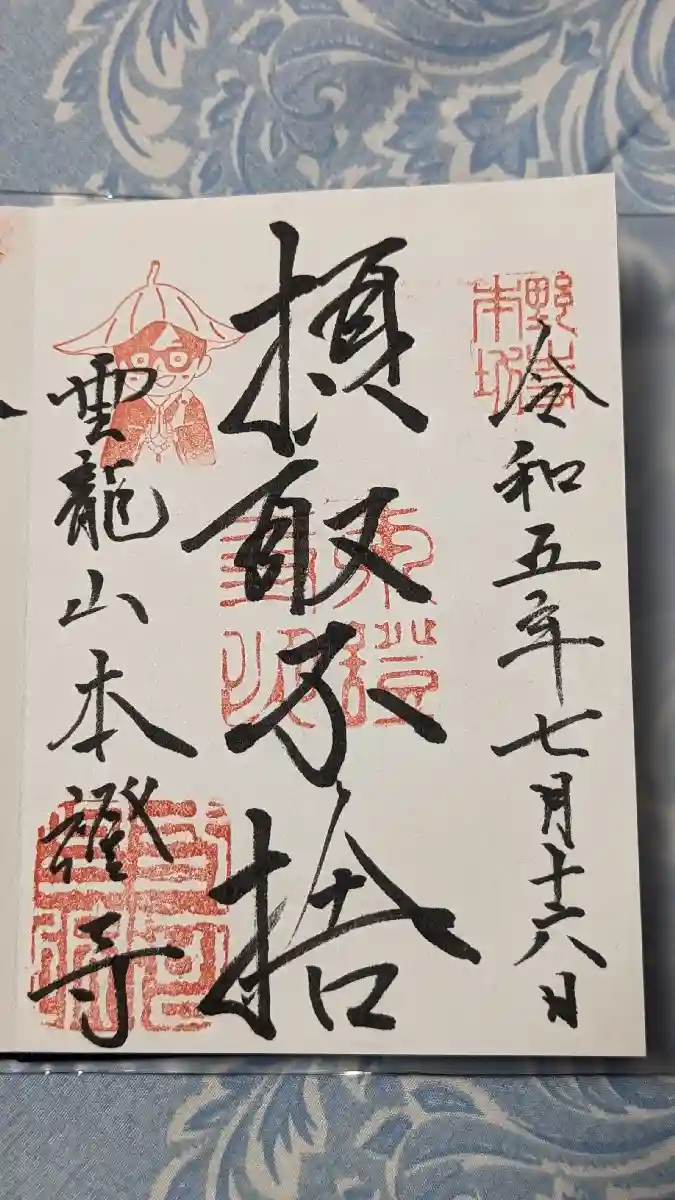 令和五年七月十六日
摂取不捨
雲龍山本證寺
野寺本坊